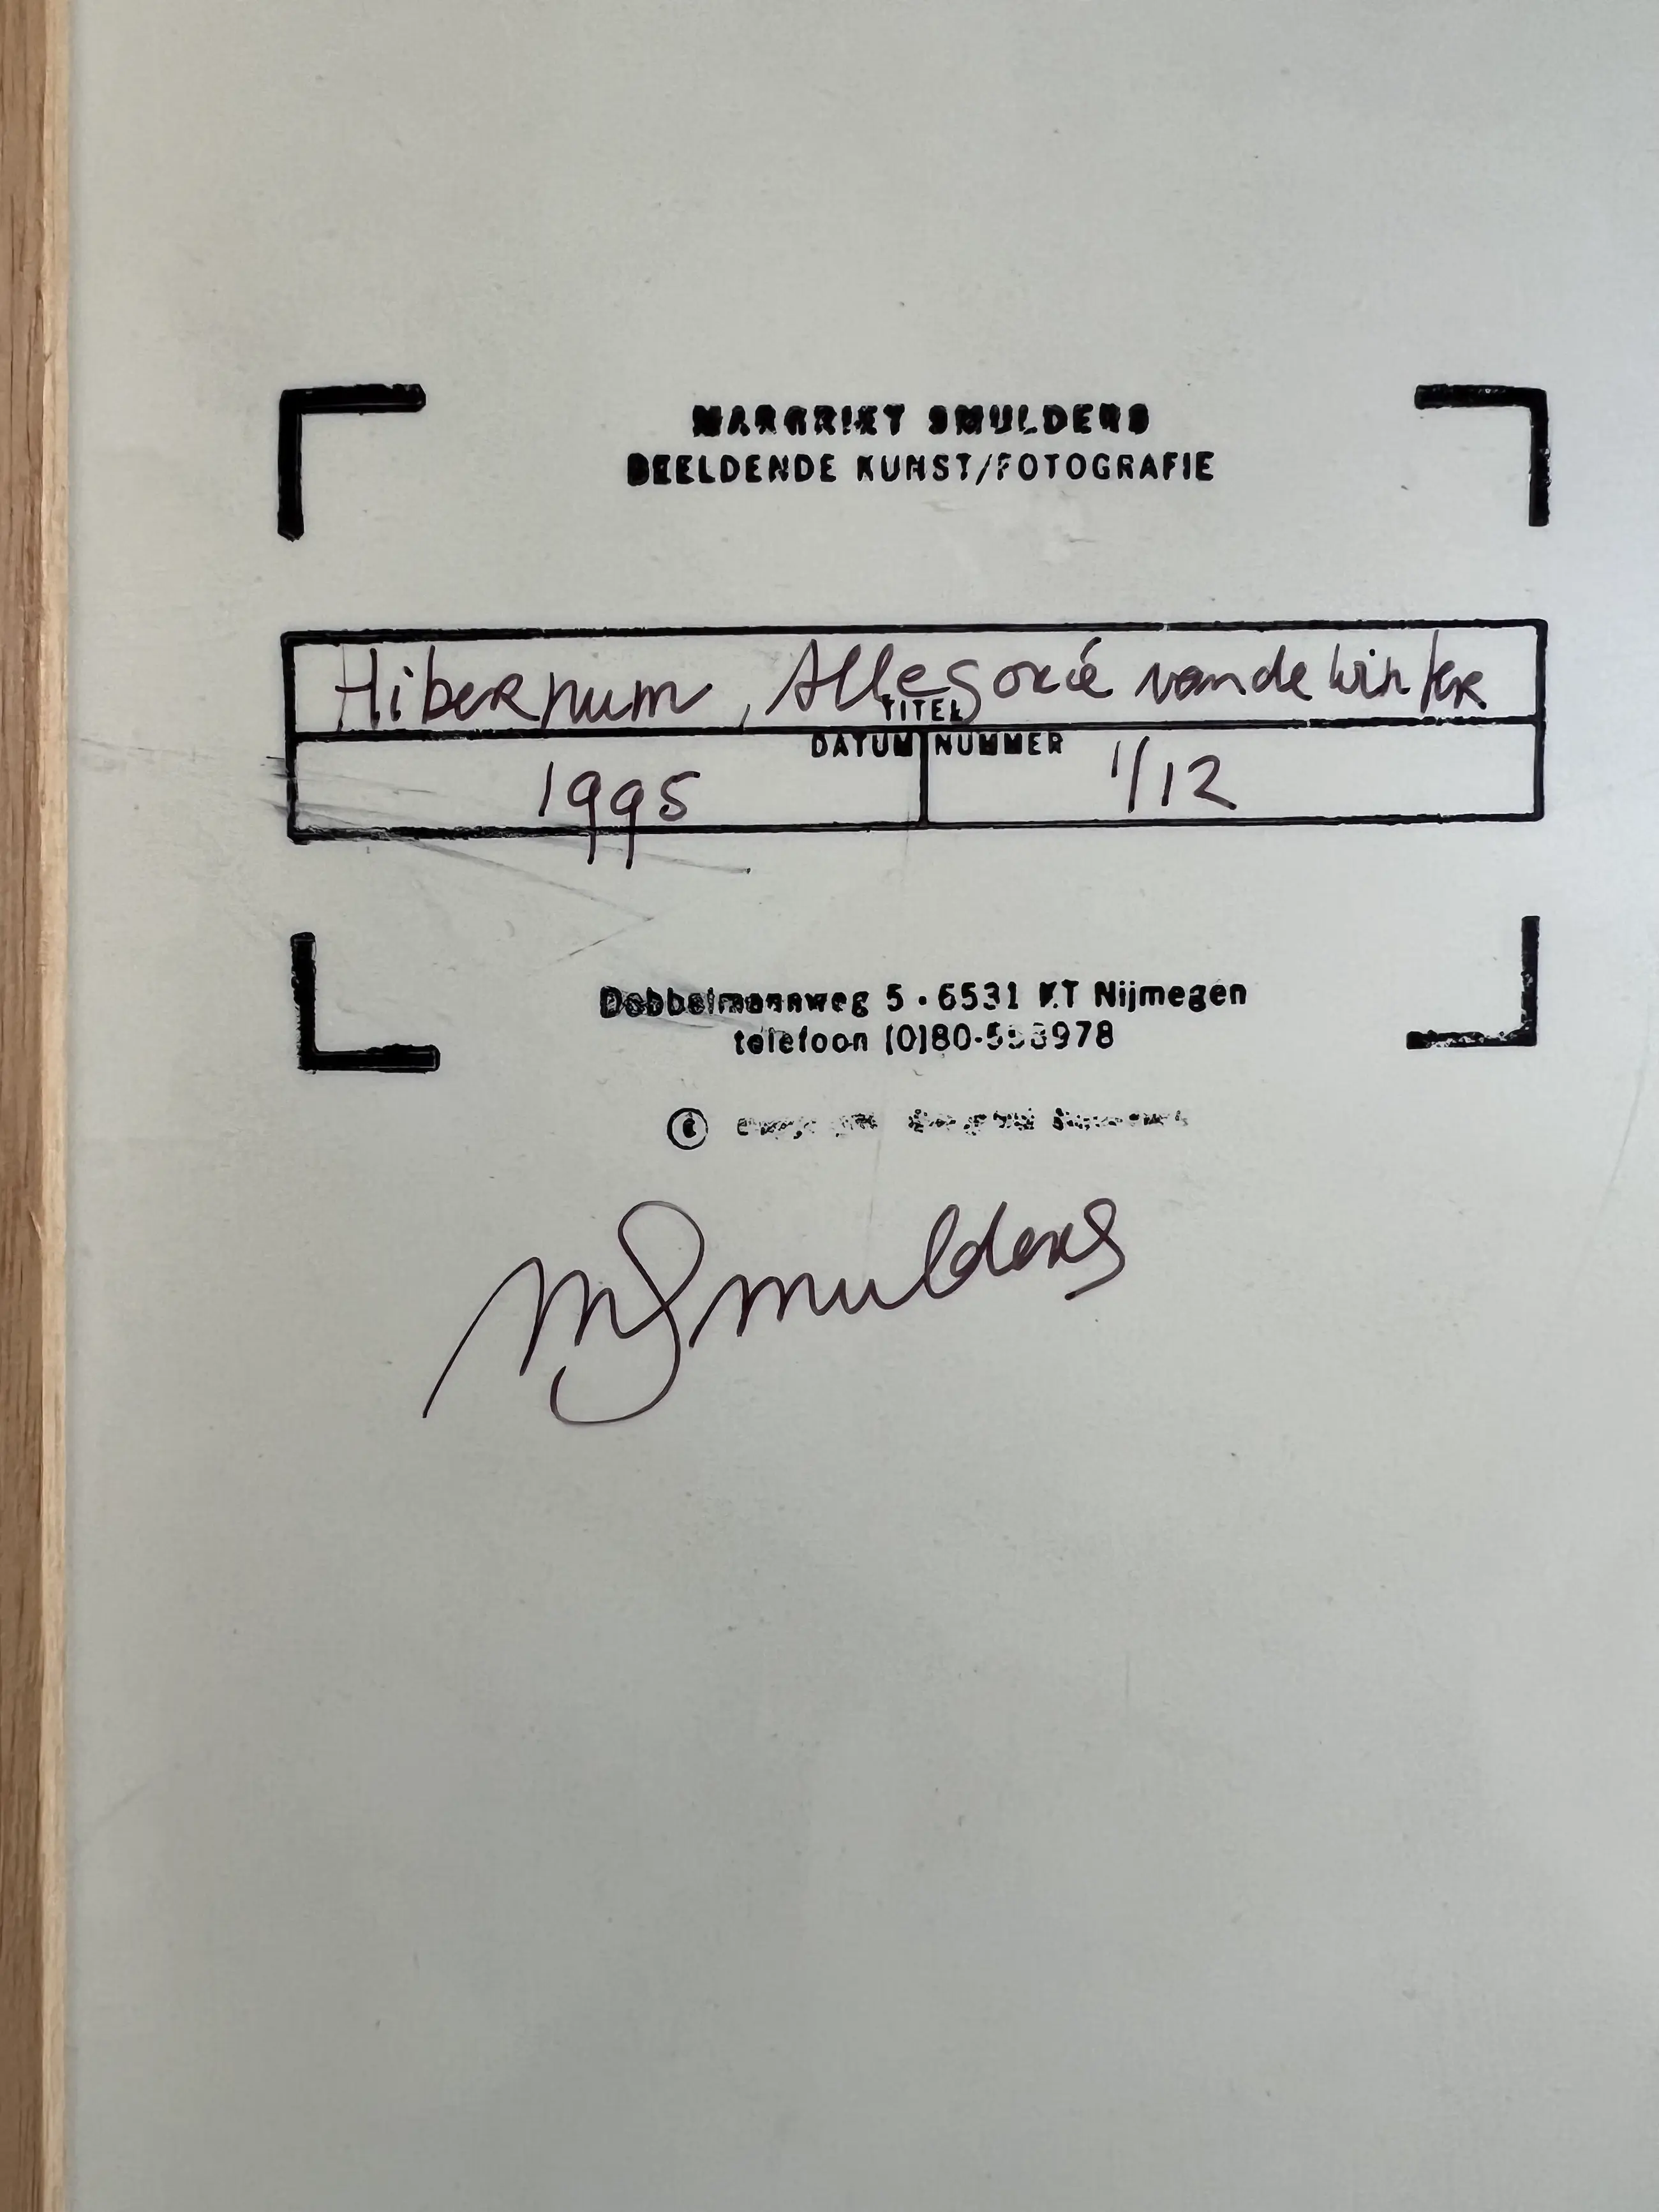 MARGRIET SMULDERS
BEELDENDE KUNST/FOTOGRAFIE
Hibernum, Allegorie van de Winter
TITEL
DATUM NUMMER
1995 1/12
Dobbelmannweg 5 · 6531 KT Nijmegen
telefoon (0)80-
©
MSmulders